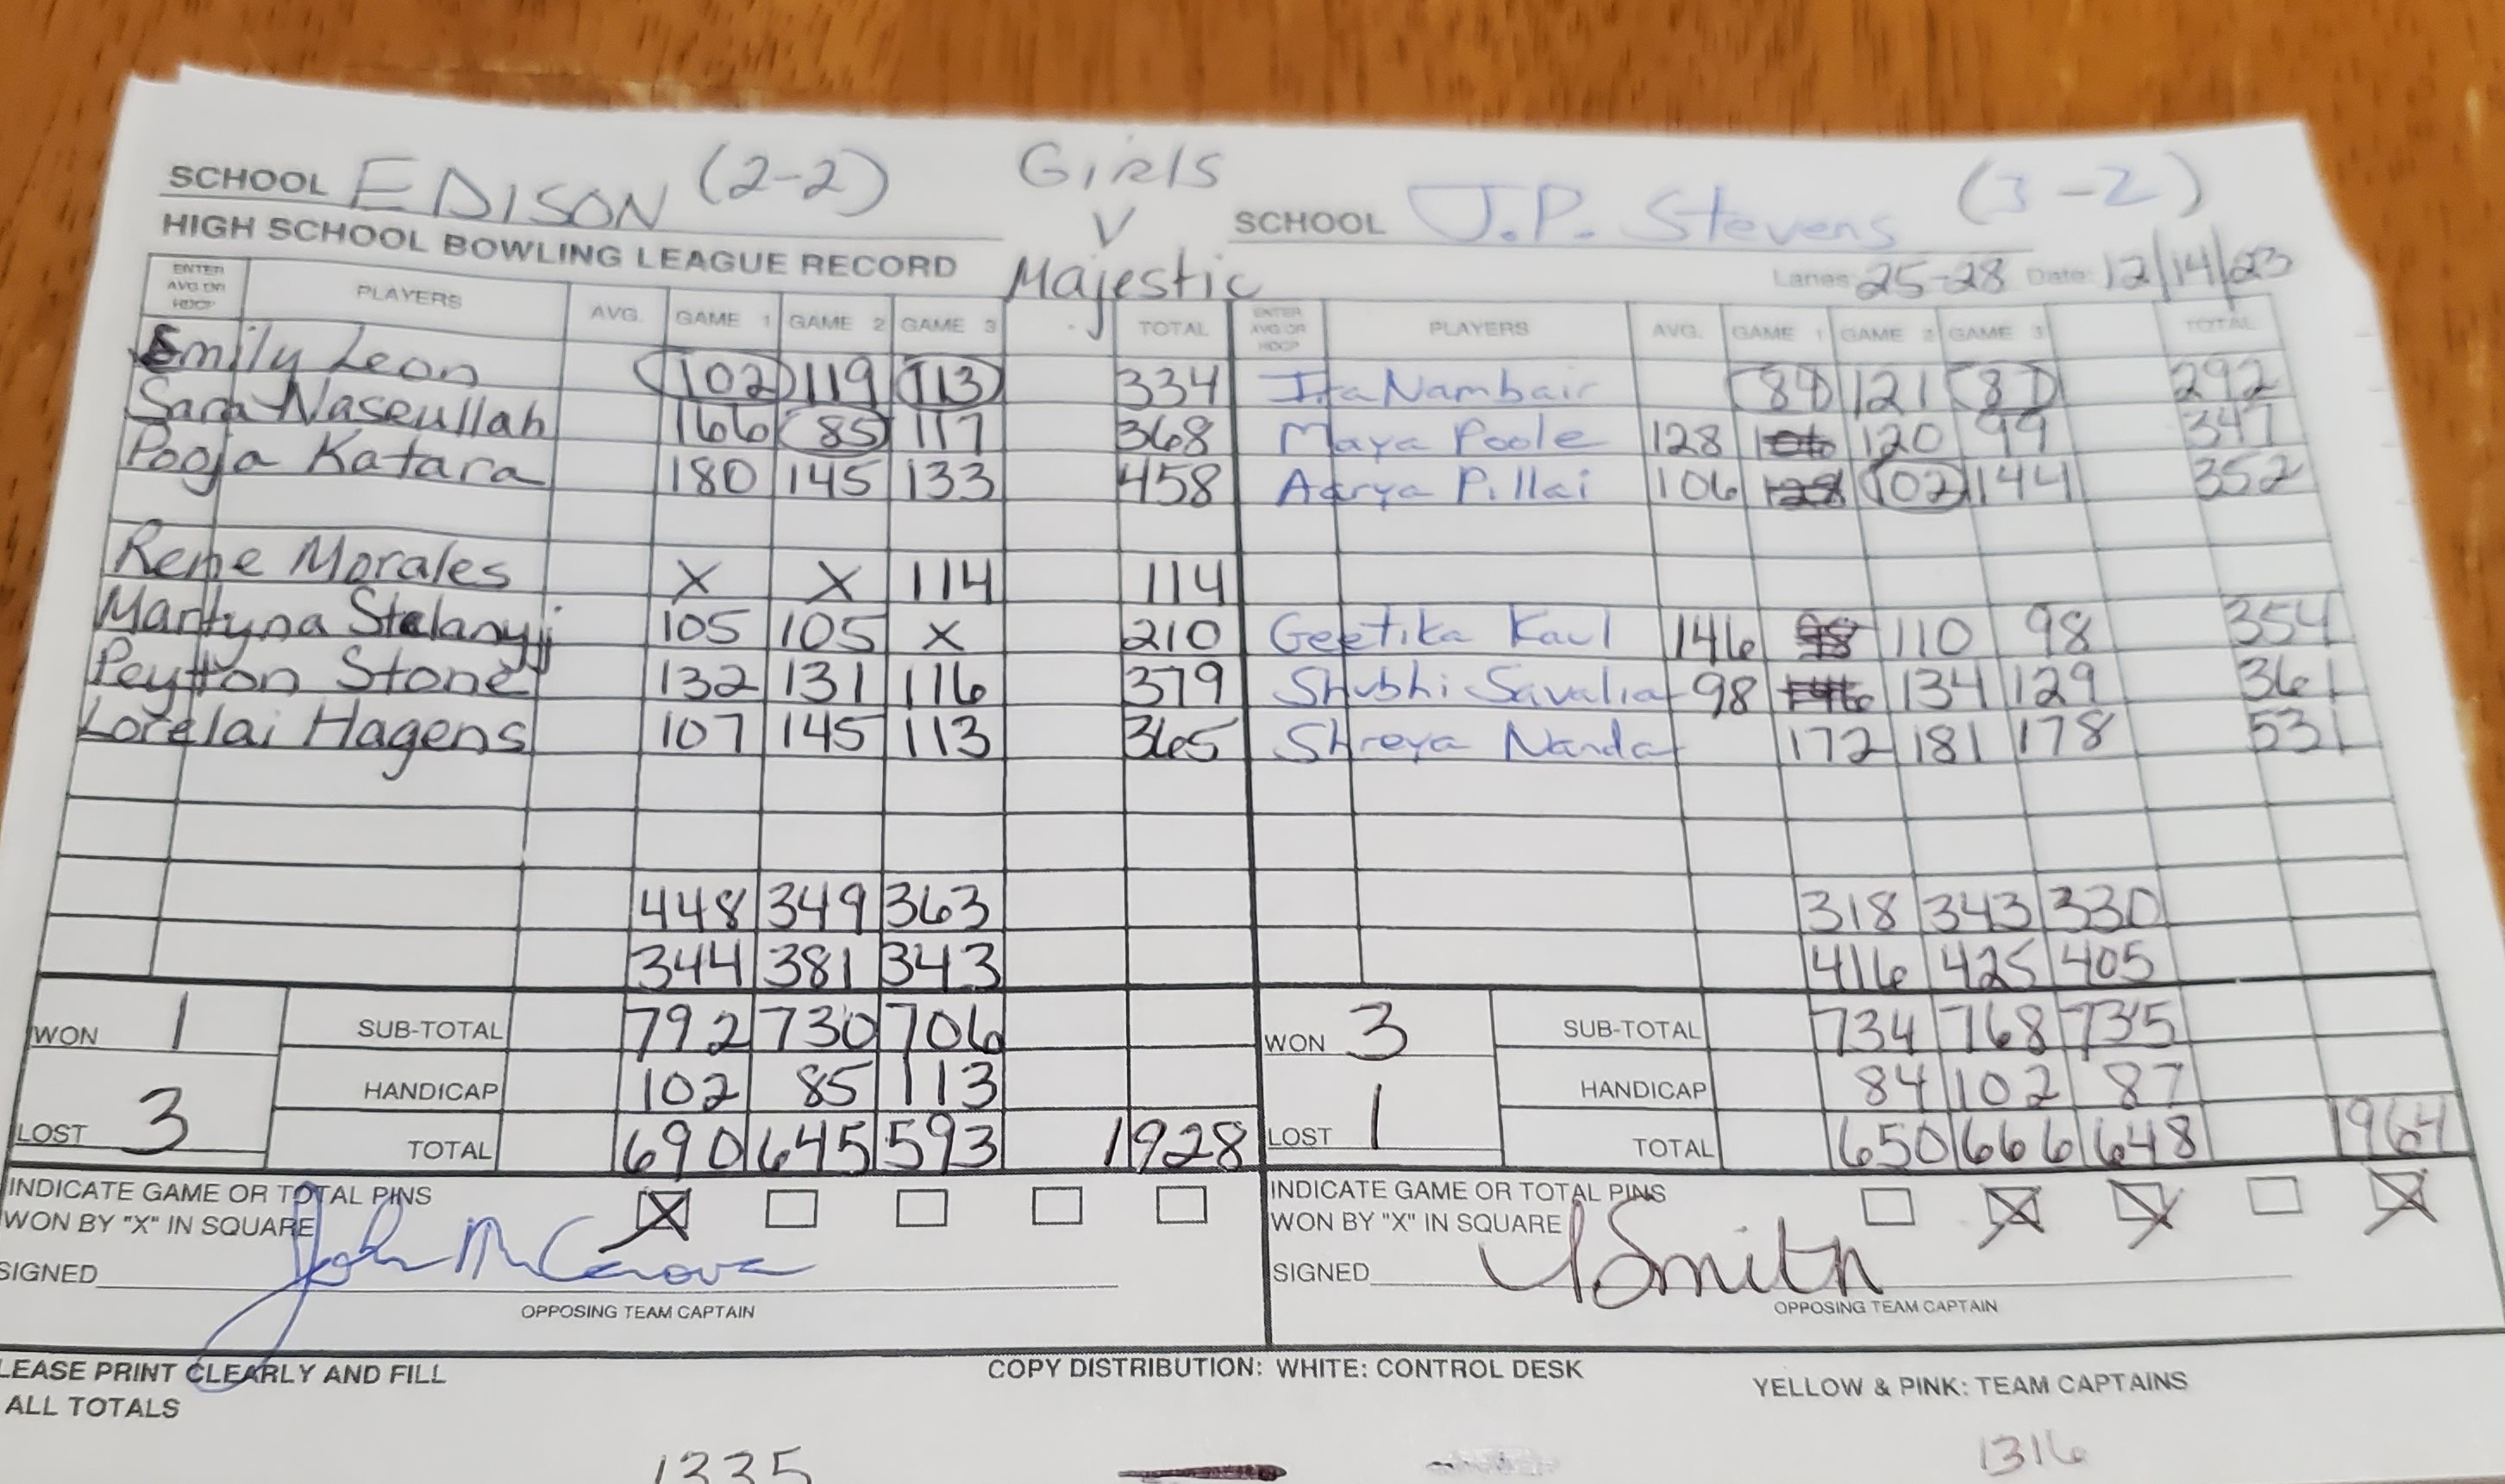 SCHOOL EDISON (2-2) Girls SCHOOL J.P. Stevens (3-2)
V
HIGH SCHOOL BOWLING LEAGUE RECORD Majestic Lanes 25-28 Date: 12/14/23
ENTER AVG OR HDCP PLAYERS AVG. GAME 1 GAME 2 GAME 3 TOTAL ENTER AVG OR HDCP PLAYERS AVG. GAME 1 GAME 2 GAME 3 TOTAL
Emily Leon 102 119 113 334 Ita Nambair 84 121 87 292
Sara Naseullah 166 85 117 368 Maya Poole 128 106 120 99 347
Pooja Katara 180 145 133 458 Aarya Pillai 106 128 102 144 352
Rene Morales X X 114 114
Martyna Stelany 105 105 X 210 Geetika Kaul 146 98 110 98 354
Peyton Stone 132 131 116 379 Shubhi Savalia 98 146 134 129 361
Lorelai Hagens 107 145 113 365 Shreya Nanda 172 181 178 531
448 349 363 318 343 330
344 381 343 416 425 405
WON 1 SUB-TOTAL 792 730 706 WON 3 SUB-TOTAL 734 768 735
HANDICAP 102 85 113 HANDICAP 84 102 87
LOST 3 TOTAL 690 645 593 1928 LOST 1 TOTAL 650 666 648 1964
INDICATE GAME OR TOTAL PINS INDICATE GAME OR TOTAL PINS
WON BY "X" IN SQUARE X WON BY "X" IN SQUARE X X X
SIGNED John SIGNED Smith
OPPOSING TEAM CAPTAIN OPPOSING TEAM CAPTAIN
LEASE PRINT CLEARLY AND FILL COPY DISTRIBUTION: WHITE: CONTROL DESK YELLOW & PINK: TEAM CAPTAINS
ALL TOTALS
1335 1316